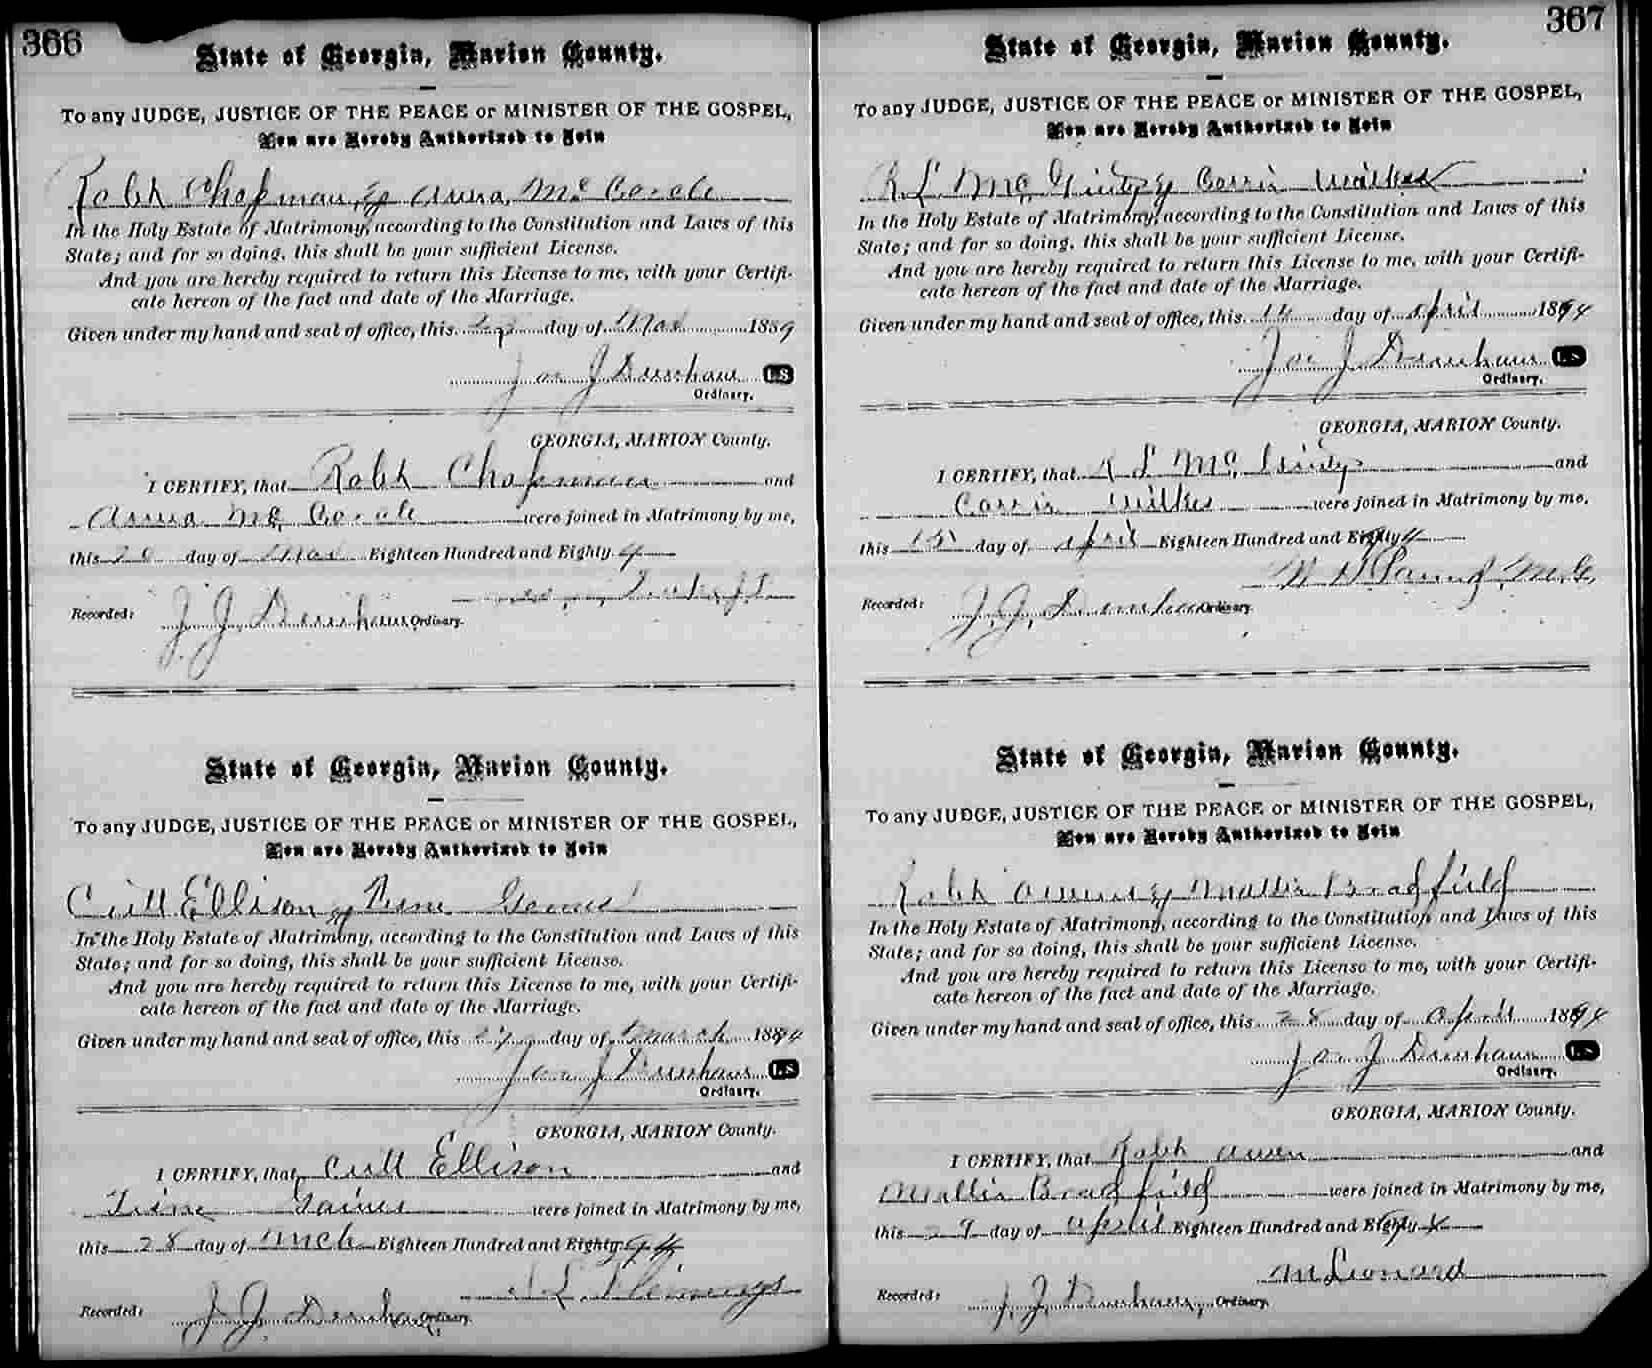 366
State of Georgia, Marion County.
To any JUDGE, JUSTICE OF THE PEACE or MINISTER OF THE GOSPEL,
You are Hereby Authorized to Join
Ralph Chapman & Anna Mc
In the Holy Estate of Matrimony, according to the Constitution and Laws of this
State; and for so doing, this shall be your sufficient License.
And you are hereby required to return this License to me, with your Certifi-
cate hereon of the fact and date of the Marriage.
Given under my hand and seal of office, this day of Mar 1889
J Dunham LS
Ordinary.
GEORGIA, MARION County.
I CERTIFY, that Ralph Chapman and
Anna Mc were joined in Matrimony by me,
this 20 day of Mar Eighteen Hundred and Eighty 9
Recorded: J. J. Dunham Ordinary.
State of Georgia, Marion County.
To any JUDGE, JUSTICE OF THE PEACE or MINISTER OF THE GOSPEL,
You are Hereby Authorized to Join
Ellison &
In the Holy Estate of Matrimony, according to the Constitution and Laws of this
State; and for so doing, this shall be your sufficient License.
And you are hereby required to return this License to me, with your Certifi-
cate hereon of the fact and date of the Marriage.
Given under my hand and seal of office, this 27 day of March 1894
J Dunham LS
Ordinary.
GEORGIA, MARION County.
I CERTIFY, that Ellison and
Gaines were joined in Matrimony by me,
this 28 day of Mch Eighteen Hundred and Eighty 94
Flemings
Recorded: J J Dunham Ordinary.
367
State of Georgia, Marion County.
To any JUDGE, JUSTICE OF THE PEACE or MINISTER OF THE GOSPEL,
You are Hereby Authorized to Join
R. L. McGinty & Corrie Wilkes
In the Holy Estate of Matrimony, according to the Constitution and Laws of this
State; and for so doing, this shall be your sufficient License.
And you are hereby required to return this License to me, with your Certifi-
cate hereon of the fact and date of the Marriage.
Given under my hand and seal of office, this 14 day of April 1894
J Dunham LS
Ordinary.
GEORGIA, MARION County.
I CERTIFY, that R L McGinty and
Corrie Wilkes were joined in Matrimony by me,
this 15 day of April Eighteen Hundred and Eighty 4
M.G.
Recorded: J. J. Dunham Ordinary.
State of Georgia, Marion County.
To any JUDGE, JUSTICE OF THE PEACE or MINISTER OF THE GOSPEL,
You are Hereby Authorized to Join
Ralph & Mallie Bradfield
In the Holy Estate of Matrimony, according to the Constitution and Laws of this
State; and for so doing, this shall be your sufficient License.
And you are hereby required to return this License to me, with your Certifi-
cate hereon of the fact and date of the Marriage.
Given under my hand and seal of office, this 28 day of April 1894
J Dunham LS
Ordinary.
GEORGIA, MARION County.
I CERTIFY, that Ralph and
Mallie Bradfield were joined in Matrimony by me,
this 29 day of April Eighteen Hundred and Eighty 4
M Leonard
Recorded: J. J. Dunham, Ordinary.